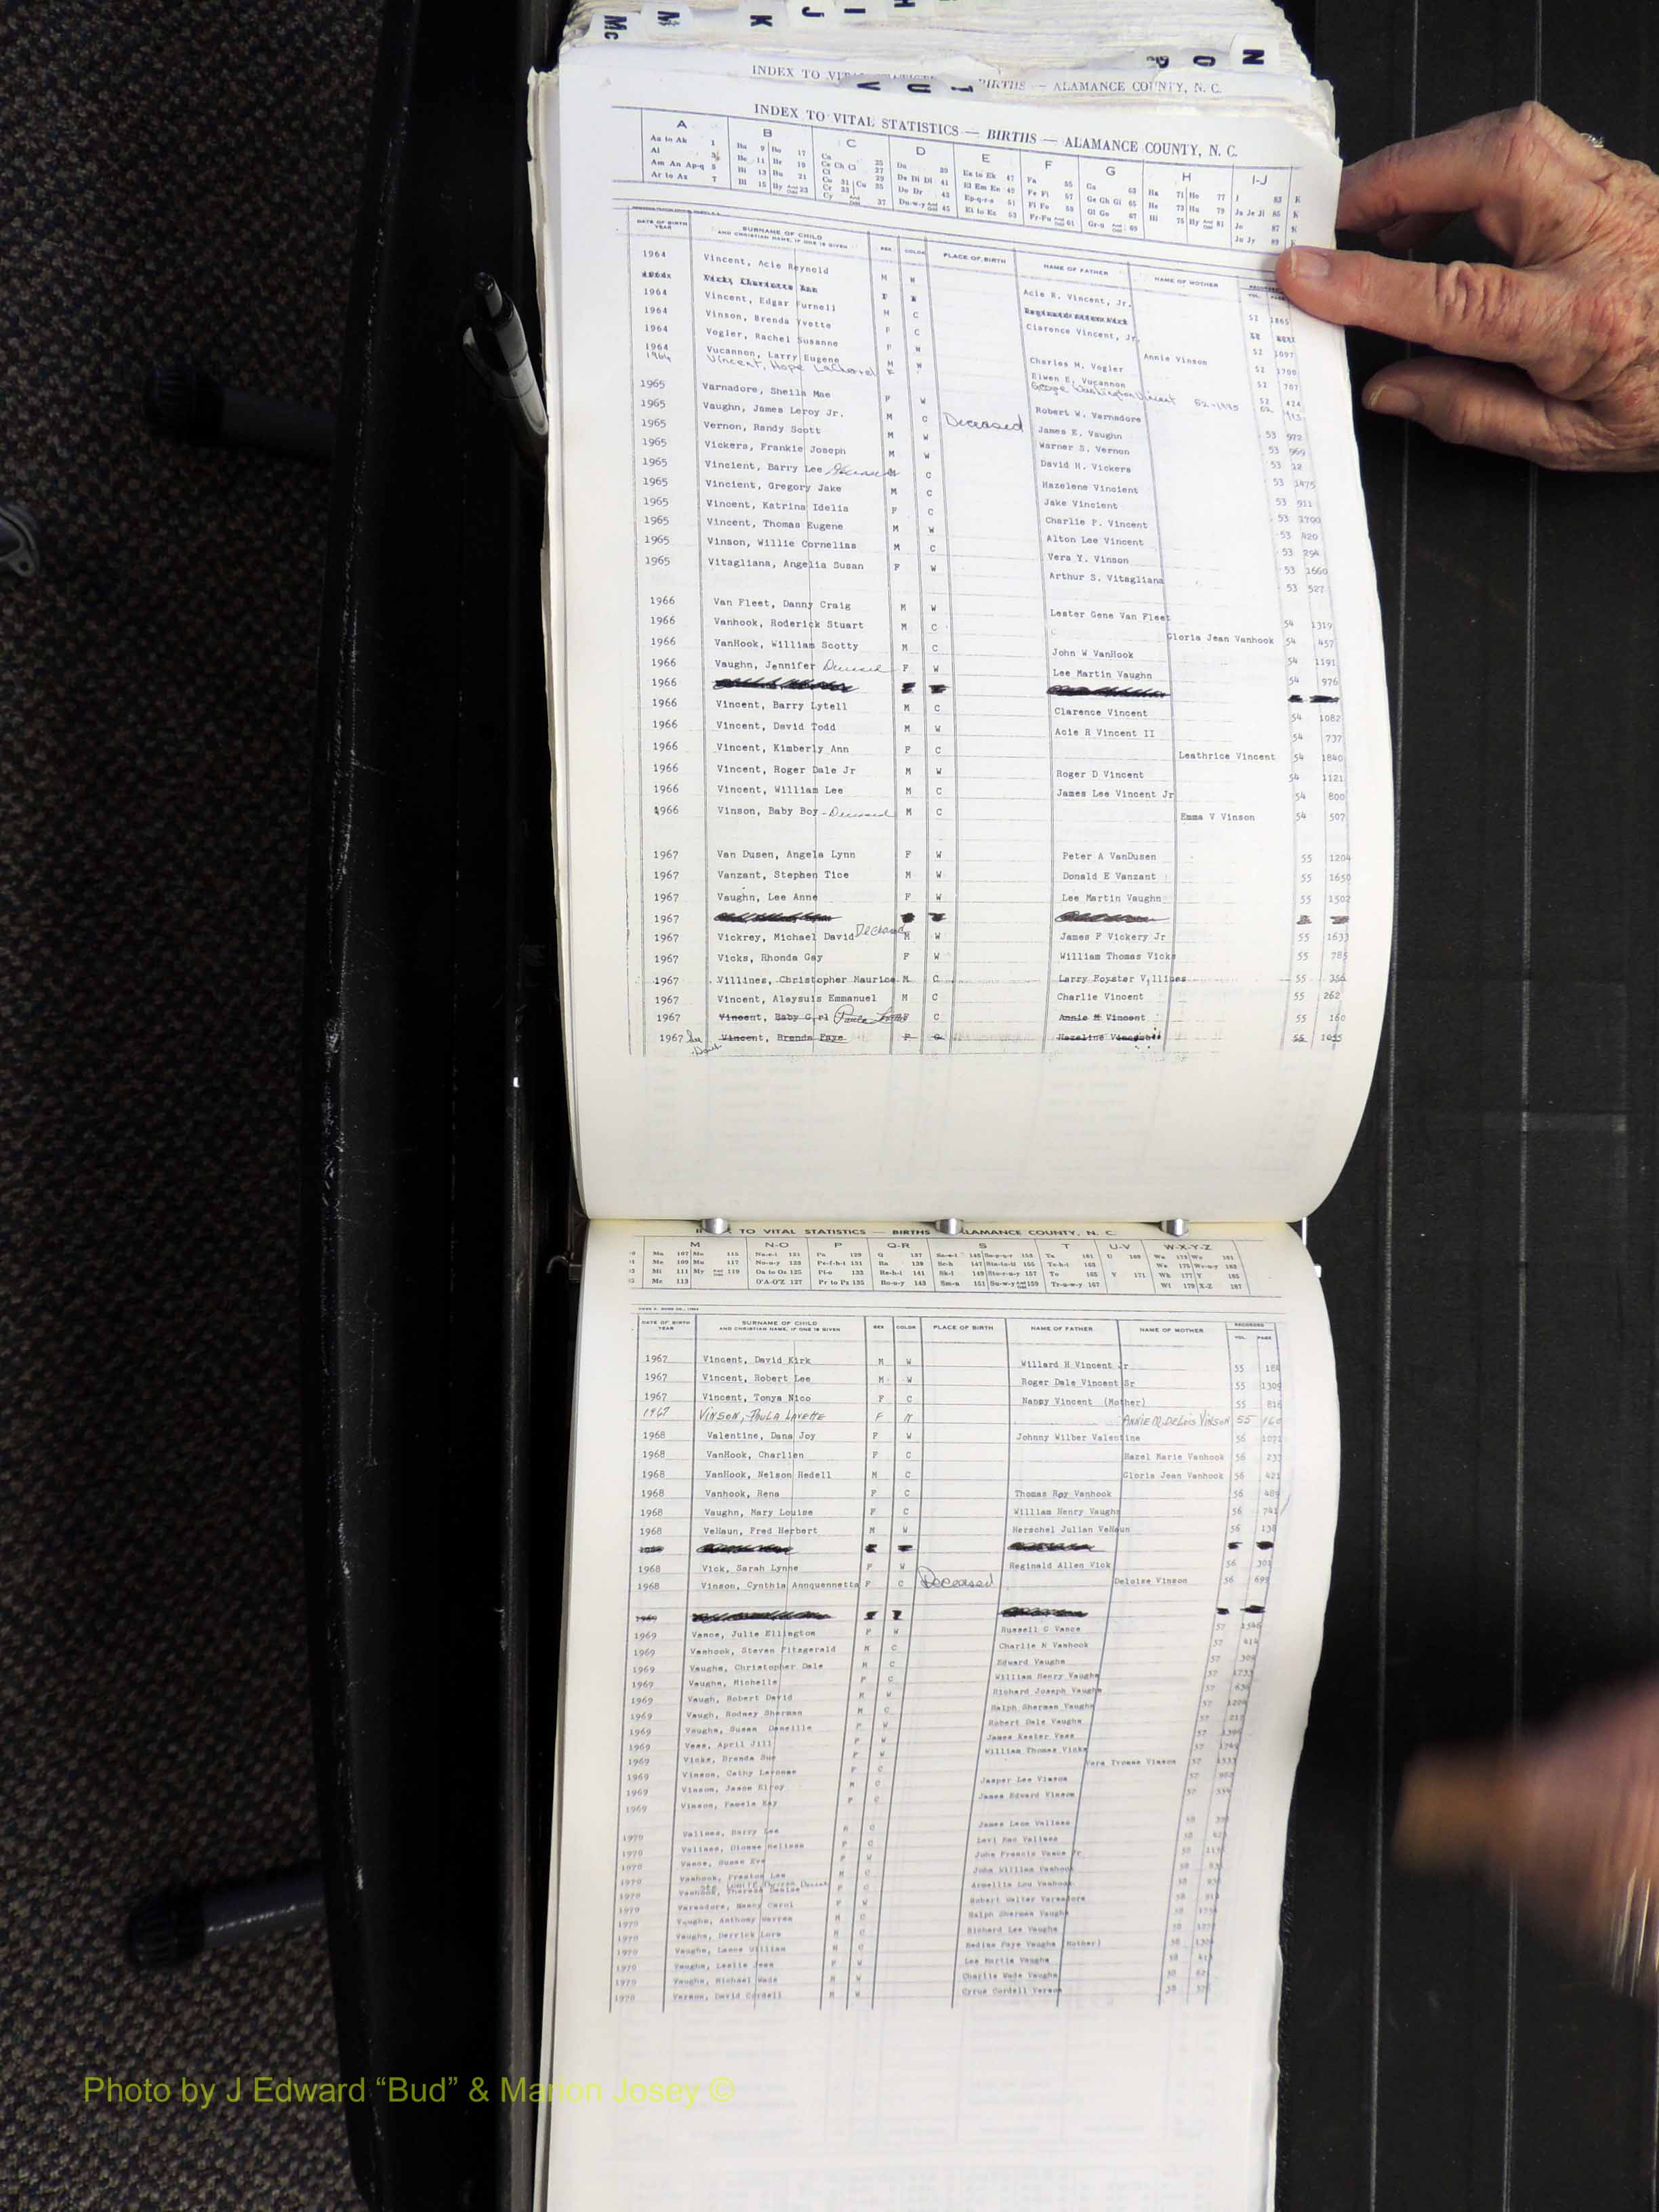 Mc M K J I H
P O N
V U T
INDEX TO BIRTHS — ALAMANCE COUNTY, N. C.
INDEX TO VITAL STATISTICS — BIRTHS — ALAMANCE COUNTY, N. C.
A B C D E F G H I-J
DATE OF BIRTH YEAR SURNAME OF CHILD AND CHRISTIAN NAME, IF ONE IS GIVEN SEX COLOR PLACE OF BIRTH NAME OF FATHER NAME OF MOTHER RECORDED VOL. PAGE
1964 Vincent, Acie Reynold M W Acie R. Vincent, Jr. 52 1865
1964 Vincent, Edgar Furnell M C Clarence Vincent, Jr. 52 1097
1964 Vinson, Brenda Yvette F C Annie Vinson 52 1700
1964 Vogler, Rachel Susanne F W Charles M. Vogler 52 707
1964 Vucannon, Larry Eugene M W Eiwen E. Vucannon 52 424
1964 Vincent, Hope F George Washington Vincent
1965 Varnadore, Sheila Mae F W Robert W. Varnadore 53 972
1965 Vaughn, James Leroy Jr. M C Deceased James E. Vaughn 53 969
1965 Vernon, Randy Scott M W Warner S. Vernon 53 12
1965 Vickers, Frankie Joseph M W David H. Vickers 53 1475
1965 Vincient, Barry Lee Deceased M C Hazelene Vincient 53 911
1965 Vincient, Gregory Jake M C Jake Vincient 53 1700
1965 Vincent, Katrina Idelia F C Charlie F. Vincent 53 420
1965 Vincent, Thomas Eugene M W Alton Lee Vincent 53 294
1965 Vinson, Willie Cornelias M C Vera Y. Vinson 53 1660
1965 Vitagliana, Angelia Susan F W Arthur S. Vitagliana 53 527
1966 Van Fleet, Danny Craig M W Lester Gene Van Fleet 54 1319
1966 Vanhook, Roderick Stuart M C Gloria Jean Vanhook 54 457
1966 VanHook, William Scotty M C John W VanHook 54 1191
1966 Vaughn, Jennifer Deceased F W Lee Martin Vaughn 54 976
1966
1966 Vincent, Barry Lytell M C Clarence Vincent 54 1082
1966 Vincent, David Todd M W Acie R Vincent II 54 737
1966 Vincent, Kimberly Ann F C Leathrice Vincent 54 1840
1966 Vincent, Roger Dale Jr M W Roger D Vincent 54 1121
1966 Vincent, William Lee M C James Lee Vincent Jr 54 800
1966 Vinson, Baby Boy - Deceased M C Emma V Vinson 54 507
1967 Van Dusen, Angela Lynn F W Peter A VanDusen 55 1204
1967 Vanzant, Stephen Tice M W Donald E Vanzant 55 1650
1967 Vaughn, Lee Anne F W Lee Martin Vaughn 55 1502
1967
1967 Vickrey, Michael David Deceased M W James F Vickery Jr 55 1633
1967 Vicks, Rhonda Gay F W William Thomas Vicks 55 785
1967 Villines, Christopher Maurice M C Larry Royster Villines 55 356
1967 Vincent, Alaysuis Emmanuel M C Charlie Vincent 55 262
1967 Vincent, Baby Girl Paula C Annie M Vincent 55 160
1967 Vincent, Brenda Faye F C Hazeline 55 1055
INDEX TO VITAL STATISTICS — BIRTHS — ALAMANCE COUNTY, N. C.
M N-O P Q-R S T U-V W-X-Y-Z
DATE OF BIRTH YEAR SURNAME OF CHILD AND CHRISTIAN NAME, IF ONE IS GIVEN SEX COLOR PLACE OF BIRTH NAME OF FATHER NAME OF MOTHER RECORDED VOL. PAGE
1967 Vincent, David Kirk M W Willard H Vincent Jr 55 184
1967 Vincent, Robert Lee M W Roger Dale Vincent Sr 55 1309
1967 Vincent, Tonya Nico F C Nancy Vincent (Mother) 55 816
1967 VINSON, PAULA LAVETTE F N ANNIE M. DELOIS VINSON 55 160
1968 Valentine, Dana Joy F W Johnny Wilber Valentine 56 1071
1968 VanHook, Charlien F C Hazel Marie Vanhook 56 233
1968 VanHook, Nelson Hedell M C Gloria Jean Vanhook 56 421
1968 Vanhook, Rena F C Thomas Roy Vanhook 56 489
1968 Vaughn, Mary Louise F C William Henry Vaughn 56 741
1968 VeHaun, Fred Herbert M W Herschel Julian VeHaun 56 138
1968 Vick, Sarah Lynne F W Reginald Allen Vick 56 301
1968 Vinson, Cynthia Annquennetta F C Deceased Deloise Vinson 56 699
1969
1969 Vance, Julie Ellington F W Russell G Vance 57 1546
1969 Vanhook, Steven Fitzgerald M C Charlie N Vanhook 57 414
1969 Vaughn, Christopher Dale M C Edward Vaughn 57 304
1969 Vaughn, Michelle F C William Henry Vaughn 57 1733
1969 Vaugh, Robert David M W Richard Joseph Vaughn 57
1969 Vaugh, Rodney Sherman M C Ralph Sherman Vaughn 57
1969 Vaughn, Susan Daneille F W Robert Dale Vaughn 57
1969 Vess, April Jill F W James Kesler Vess 57
1969 Vicks, Brenda Sue F W William Thomas Vicks 57
1969 Vinson, Cathy Lavonne F C Vera Yvonne Vinson 57
1969 Vinson, Jason Elroy M C Jasper Lee Vinson 57
1969 Vinson, Pamela Kay F C James Edward Vinson 57
1970 Valines, Barry Lee M C James Leon Valines 58
1970 Valines, Dionne Melissa F C Levi Mac Valines 58
1970 Vance, Susan Eve F W John Francis Vance Jr 58
1970 Vanhook, Preston Lee M C John William Vanhook 58
1970 Vanhook, Theresa Denise F C Armellia Lou Vanhook 58
1970 Varnadore, Nancy Carol F W Robert Walter Varnadore 58
1970 Vaughn, Anthony Warren M C Ralph Sherman Vaughn 58
1970 Vaughn, Derrick Lorn M C Richard Lee Vaughn 58
1970 Vaughn, Lance William M C Nedina Faye Vaughn (Mother) 58
1970 Vaughn, Leslie Jean F W Lee Martin Vaughn 58
1970 Vaughn, Michael Wade M W Charlie Wade Vaughn 58
1970 Vernon, David Cordell M W Cyrus Cordell Vernon 58
Photo by J Edward “Bud” & Marion Josey ©